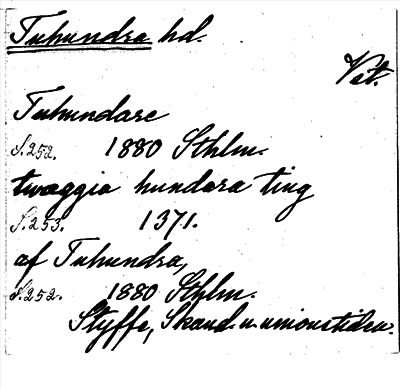 Tuhundra hd.
Vstm.
Tuhundare
S.252. 1880 Sthlm.
twæggia hundara ting
S.253. 1371.
af Tuhundra,
S.252. 1880 Sthlm.
Styffe, Skand. u. unionstiden.